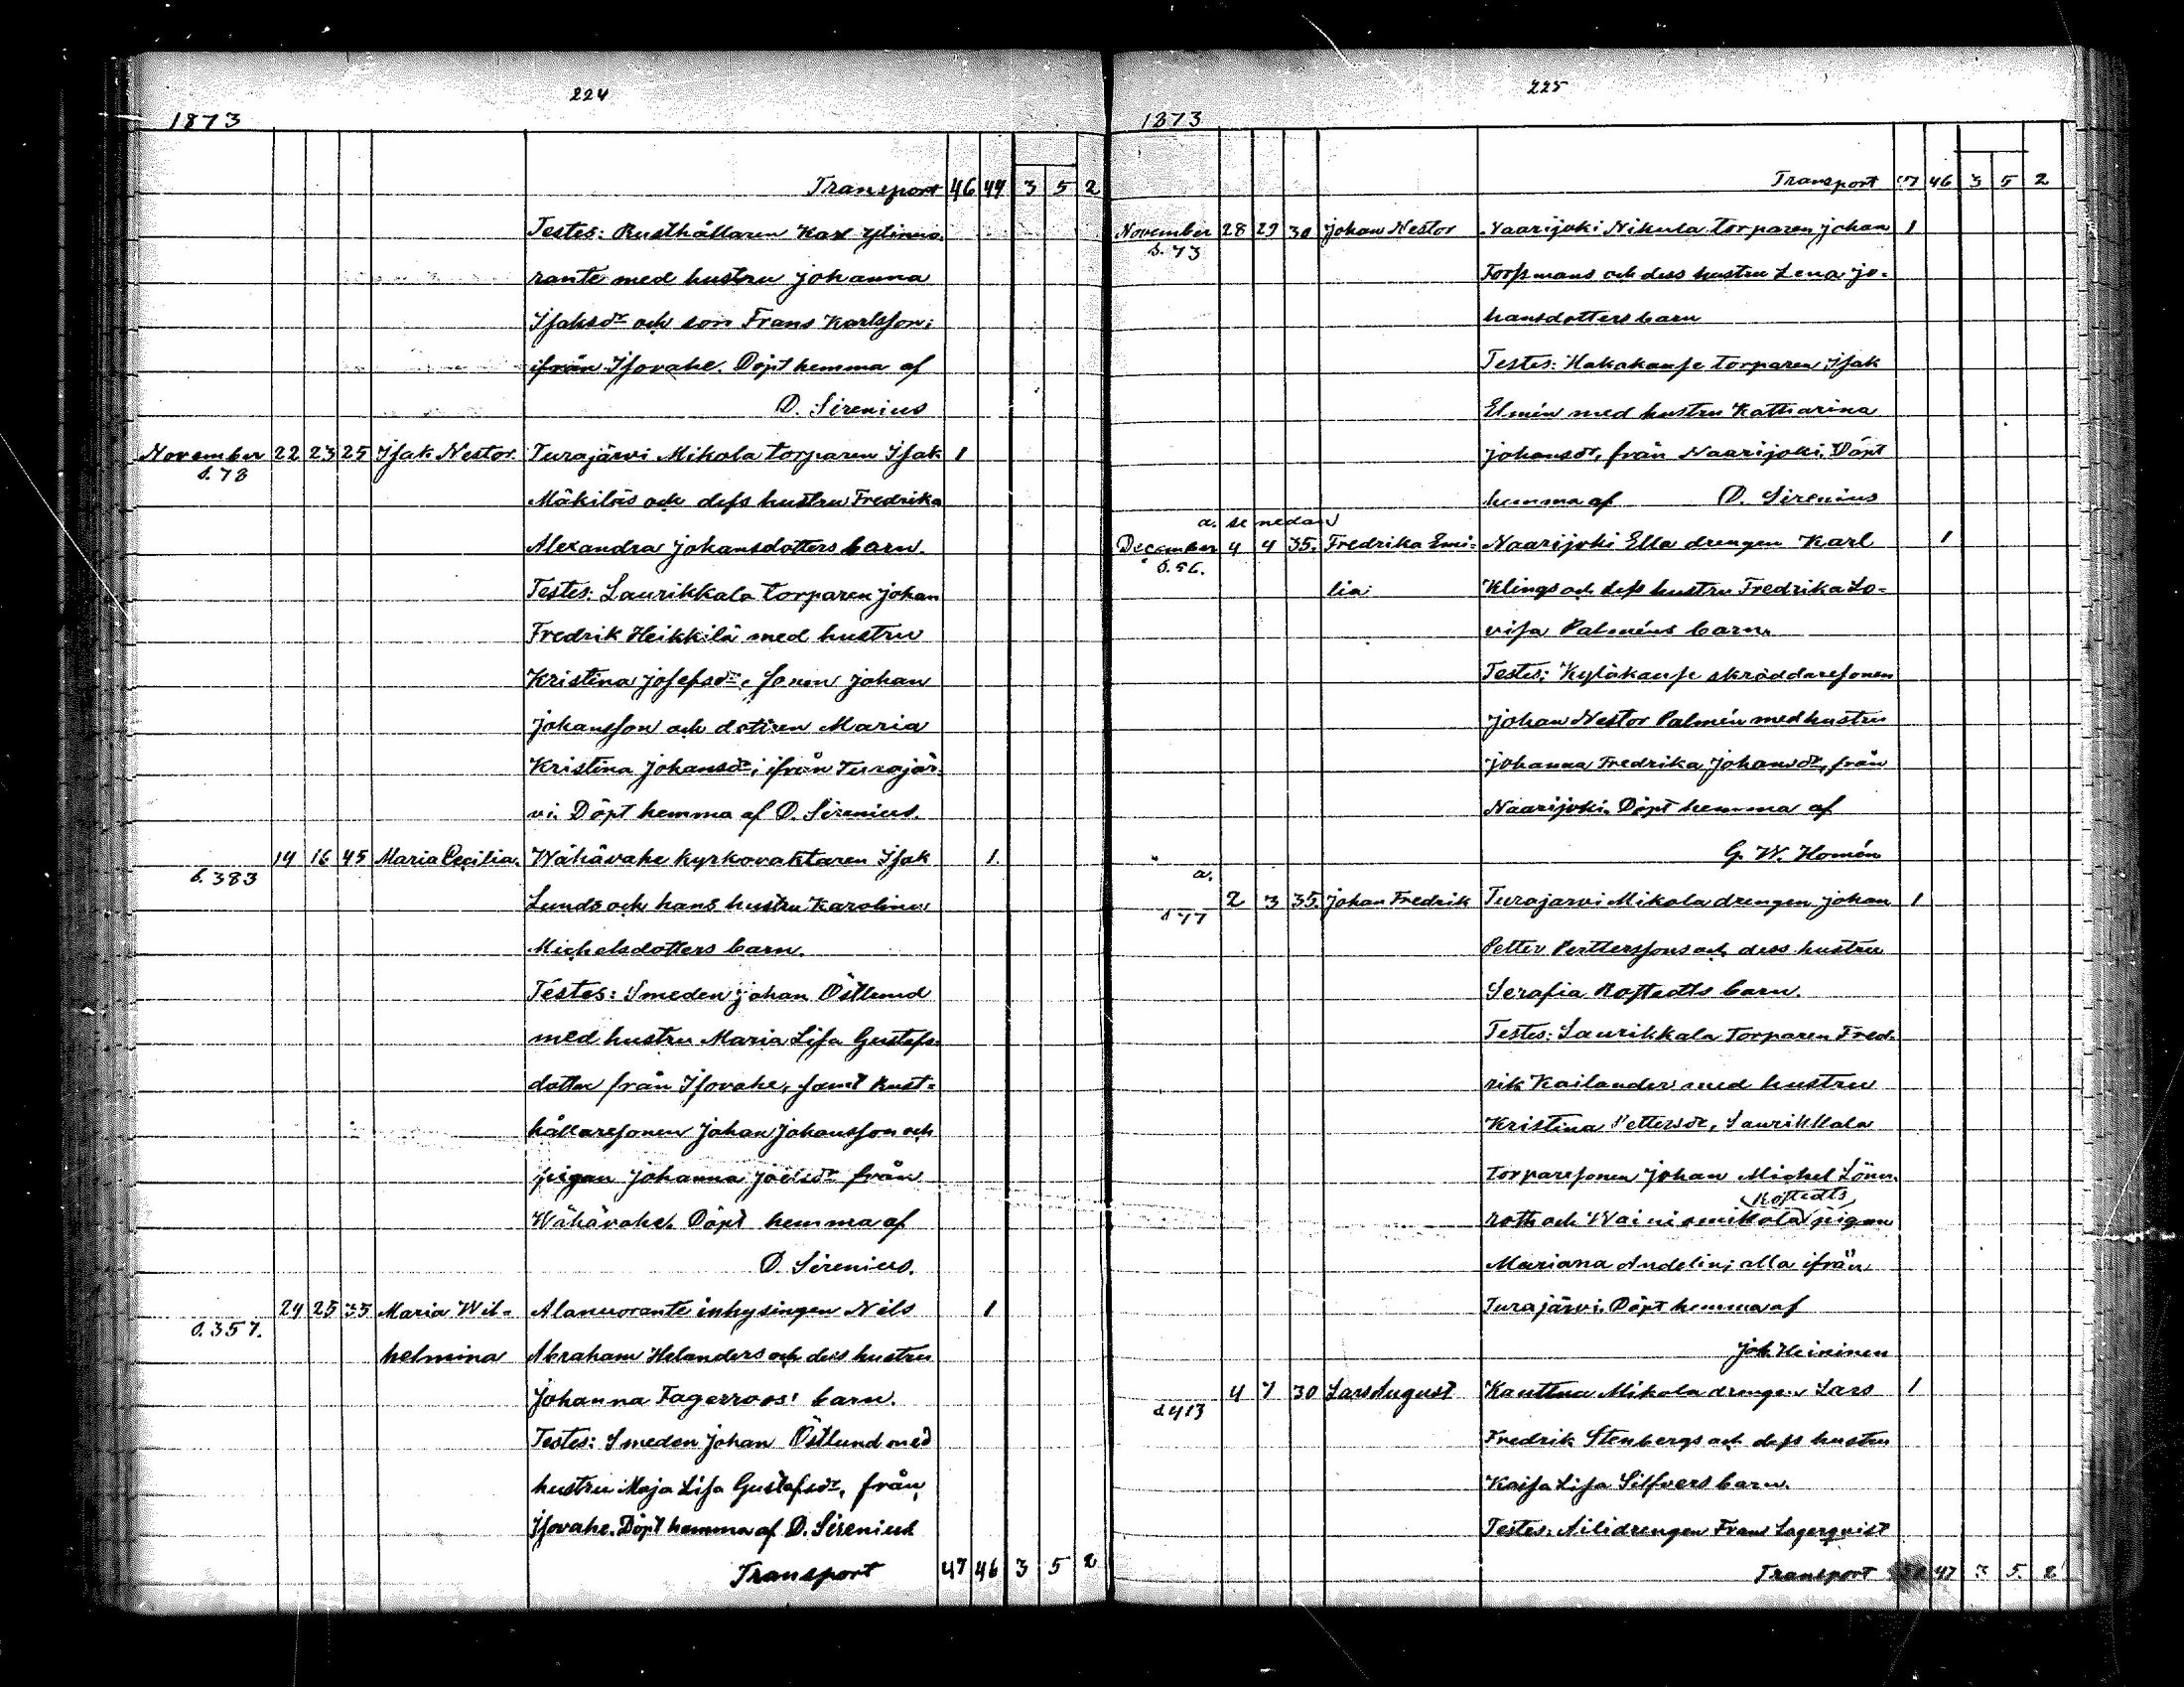 224
1873
Transport 46 44 3 5 2
Testes: Rusthållaren Karl Ylinuo-
rante med hustru Johanna
Isaksdr och son Frans Karlsson;
ifrån Isovahe. Döpt hemma af
D. Sirenius
November 22 23 25 Isak Nestor. Turajärvi Mikola torparen Isak 1
S. 73
Mäkiläs och dess hustru Fredrika
Alexandra Johansdotters barn.
Testes: Laurikkala torparen Johan
Fredrik Heikkilä med hustru
Kristina Josefsdr, sonen Johan
Johansson och dottren Maria
Kristina Johansdr; ifrån Turajär-
vi. Döpt hemma af D. Sirenius.
14 16 45 Maria Cecilia. Wähävahe kyrkovaktaren Isak 1.
S. 383
Lunds och hans hustru Karolina
Michelsdotters barn.
Testes: Smeden Johan Östlund
med hustru Maria Lisa Gustafs-
dotter från Isovahe, samt Rust-
hållaresonen Johan Johansson och
pigan Johanna Joelsdr från
Wähävahe. Döpt hemma af
D. Sirenius.
24 25 35 Maria Wil- Alanuorante inhysingen Nils 1
S. 357.
helmina Abraham Helanders och dess hustru
Johanna Fagerroos' barn.
Testes: Smeden Johan Östlund med
hustru Maja Lisa Gustafsdr, från
Isovahe. Döpt hemma af D. Sirenius
Transport 47 46 3 5 2
225
1873
Transport 47 46 3 5 2
November 28 29 30 Johan Nestor Naarijoki Nikula torparen Johan 1
S. 73
Forssmans och dess hustru Lena Jo-
hansdotters barn
Testes: Hakakause torparen Isak
Elmén med hustru Katharina
Johansdr, från Naarijoki. Döpt
hemma af D. Sirenius
a. se nedan
December 4 4 35. Fredrika Emi- Naarijoki Ella drengen Karl 1
S. 56.
lia Klings och dess hustru Fredrika Lo-
visa Palméns barn.
Testes: Kyläkause skräddaresonen
Johan Nestor Palmén med hustru
Johanna Fredrika Johansdr, från
Naarijoki. Döpt hemma af
" G. W. Homén
a.
2 3 35. Johan Fredrik Turajärvi Mikola drengen Johan 1
S 77
Petter Pertterssons och dess hustru
Serafia Rostedts barn.
Testes: Laurikkala torparen Fred-
rik Kailander med hustru
Kristina Pettersdr, Laurikkala
torparesonen Johan Michel Lönn-
(Rostedts)
roth och Wainiomikola pigan
Mariana Andelin; alla ifrån
Turajärvi. Döpt hemma af
Joh. Heininen
4 7 30 Lars August Kauttua Mikola drengen Lars 1
S 413
Fredrik Stenbergs och dess hustru
Kaisa Lisa Silfvers barn.
Testes: Ailidrengen Frans Lagerqvist
Transport 47 3 5. 2